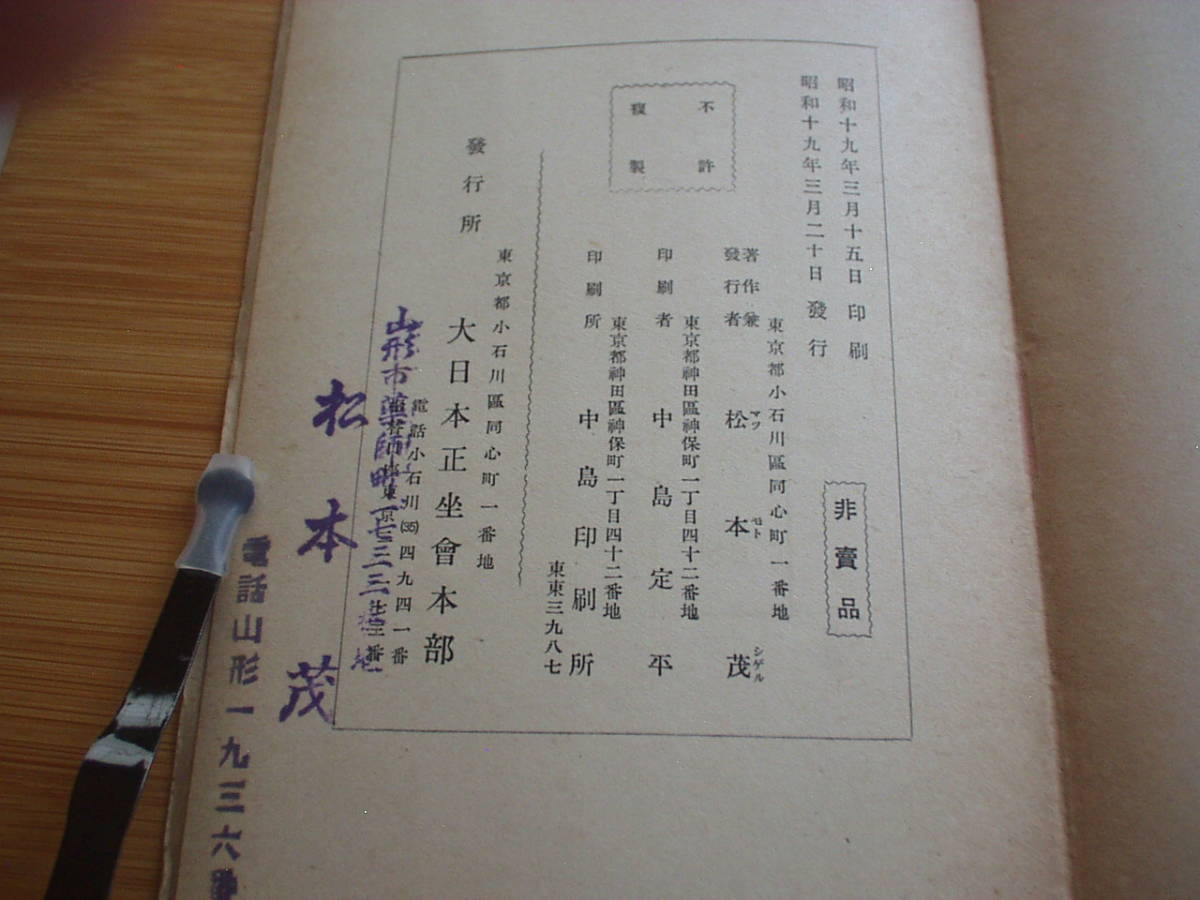 昭和十九年三月十五日 印刷
昭和十九年三月二十日 發行
非賣品
不許
複製
東京都小石川區同心町一番地
著作兼
發行者 松本茂
マツ モト シゲル
東京都神田區神保町一丁目四十二番地
印刷者 中島定平
東京都神田區神保町一丁目四十二番地
印刷所 中島印刷所
東東三九八七
東京都小石川區同心町一番地
發行所 大日本正坐會本部
電話小石川(35)四九四一番
山形市藥師町一七三三番地
松本茂
電話山形一九三六番